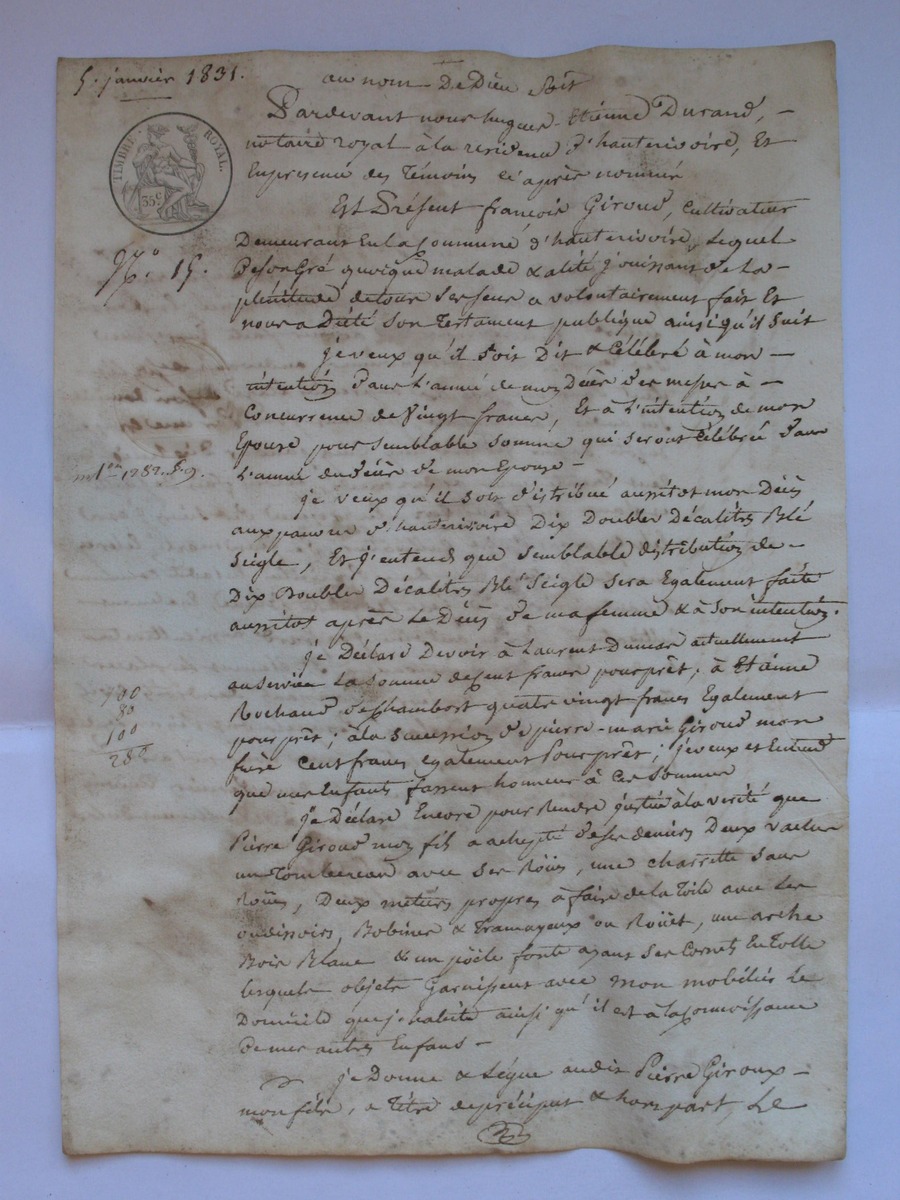 5. janvier 1831.
au nom De Dieu Soit
Pardevant nous hugues-Etienne Durand, -
notaire royal à la residence d'hauterivoire, Et
En presence des Témoins ci après nommés
TIMBRE ROYAL.
35c
Est Présent françois Giroud, Cultivateur
Demeurant En la Commune d'hauterivoire, Lequel
No. 15.
De son Gré quoique malade & alité jouissant de La -
plénitude de tous ses sens a volontairement fait Et
nous a Dicté son Testament publique ainsi qu'il suit
je veux qu'il soit Dit & Célébré à mon -
intention dans L'année de mon Décès des messes à -
Concurrence de Vingt francs, Et à L'intention de mon
Epouse pour semblable somme qui seront Célébrée dans
L'année du décès de mon Epouse -
1282. 89.
je veux qu'il soit distribué aussitot mon Décès
aux pauvres d'hauterivoire Dix Doubles Décalitres Blé
Seigle, Et j'entends que semblable distribution de -
Dix Doubles Décalitres Blé Seigle sera Egalement faite
aussitot après Le Décès de ma femme & à son intention.
je Déclare Devoir à Laurent Dumas actuellement
au service La somme de cent francs pour prêt; à Etienne
100
80
100
280
Rochand de Chambost quatre vingt francs Egalement
pour prêt; à la succession de pierre-marie Giroud mon
frère Cent francs egalement Pour prêt; je veux et Entend
que mes Enfants fassent honneur à Ces Sommes
je Déclare Encore pour Rendre justice à la verité que
Pierre Giroud mon fils a acheté de ses deniers Deux vaches
un Tombereau avec ses Roües, une charrette sans
Roües, Deux métiers propres à faire de la Toile avec Les
ourdissoirs, Bobines & Tramayeux ou Roüet, une arche
Bois Blanc & un poële fonte ayant ses Cornets En Tolle
lesquels objets Garnissent avec mon mobilier Le
Domicile que j'habite ainsi qu'il est à la connoissance
De mes autres Enfans -
je Donne & Lègue audit Pierre Giroux -
mon fils, a Titre de préciput & hors part, Le